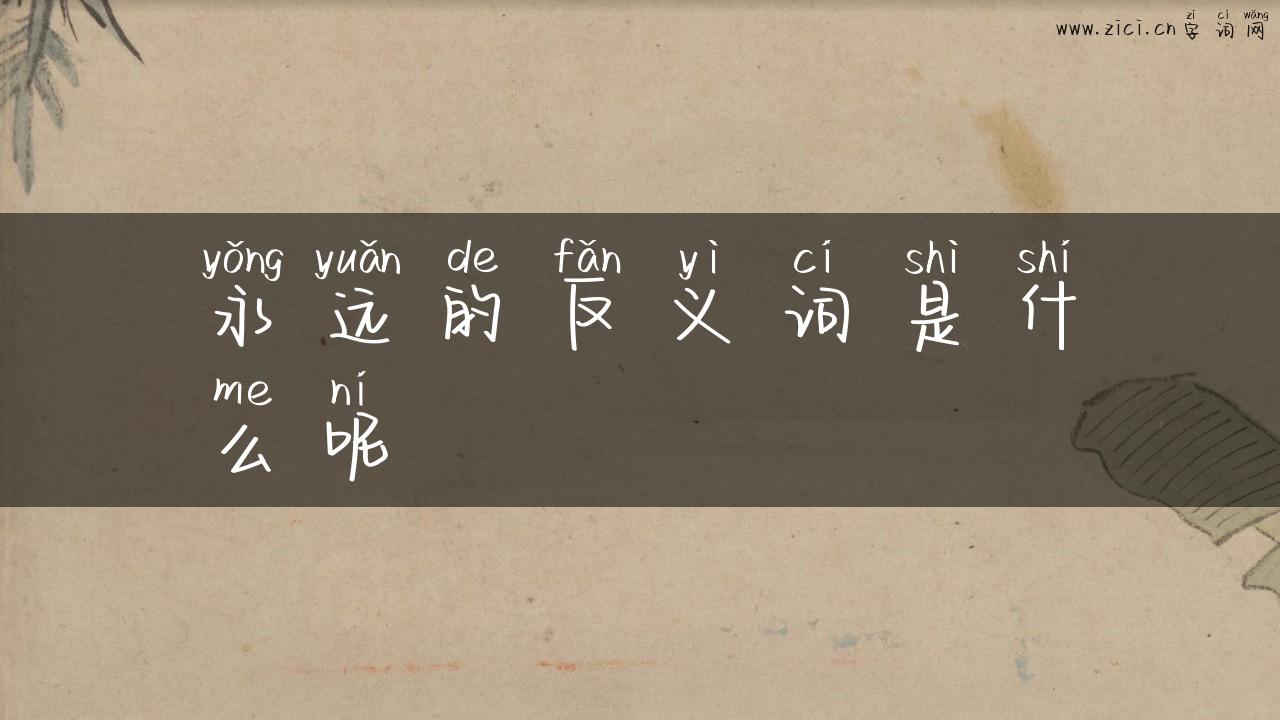 zì cí wǎng
www.zici.cn 字 词 网
yǒng yuǎn de fǎn yì cí shì shí
永 远 的 反 义 词 是 什
me ní
么 呢